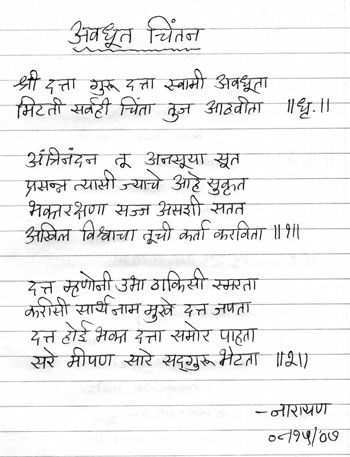 अवधूत चिंतन
श्री दत्ता गुरु दत्ता स्वामी अवधूता
मिटती सर्वही चिंता तुज आठवीता ॥धृ.॥
अत्रिनंदन तू अनसूया सूत
प्रसन्न त्यासी ज्याचे आहे सुकृत
भक्तरक्षणा सज्ज असशी सतत
अखिल विश्वाचा तूची कर्ता करविता ॥१॥
दत्त म्हणोनी उभा ठाकिसी स्मरता
करीसी सार्थ नाम मुखे दत्त जपता
दत्त होई भक्त दत्ता समोर पाहता
सरे मीपण सारे सद्गुरु भेटता ॥२॥
– नारायण